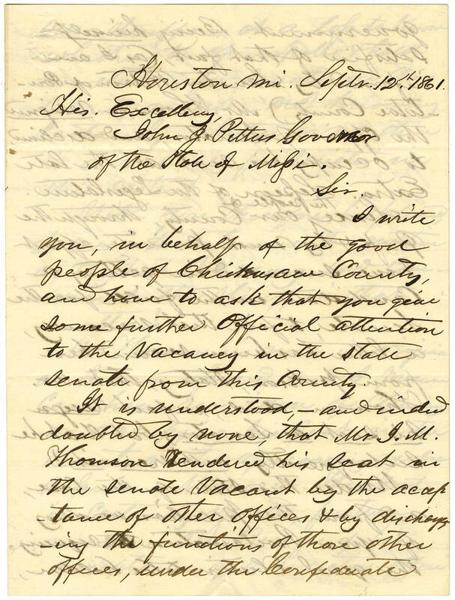 Houston Mi. Septr. 12th. 1861.
His. Excellency,
John J. Pettus Governor
of the State of Missi.
Sir.
I write
you, in behalf of the good
people of Chickasaw County,
and have to ask that you give
some further Official attention
to the Vacancy in the state
senate from this County.
It is understood, - and indeed
doubted by none, that Mr J. M.
Thomson rendered his seat in
the senate Vacant by the accep
-tance of other offices & by discharg
-ing the functions of those other
offices, under the Confederate